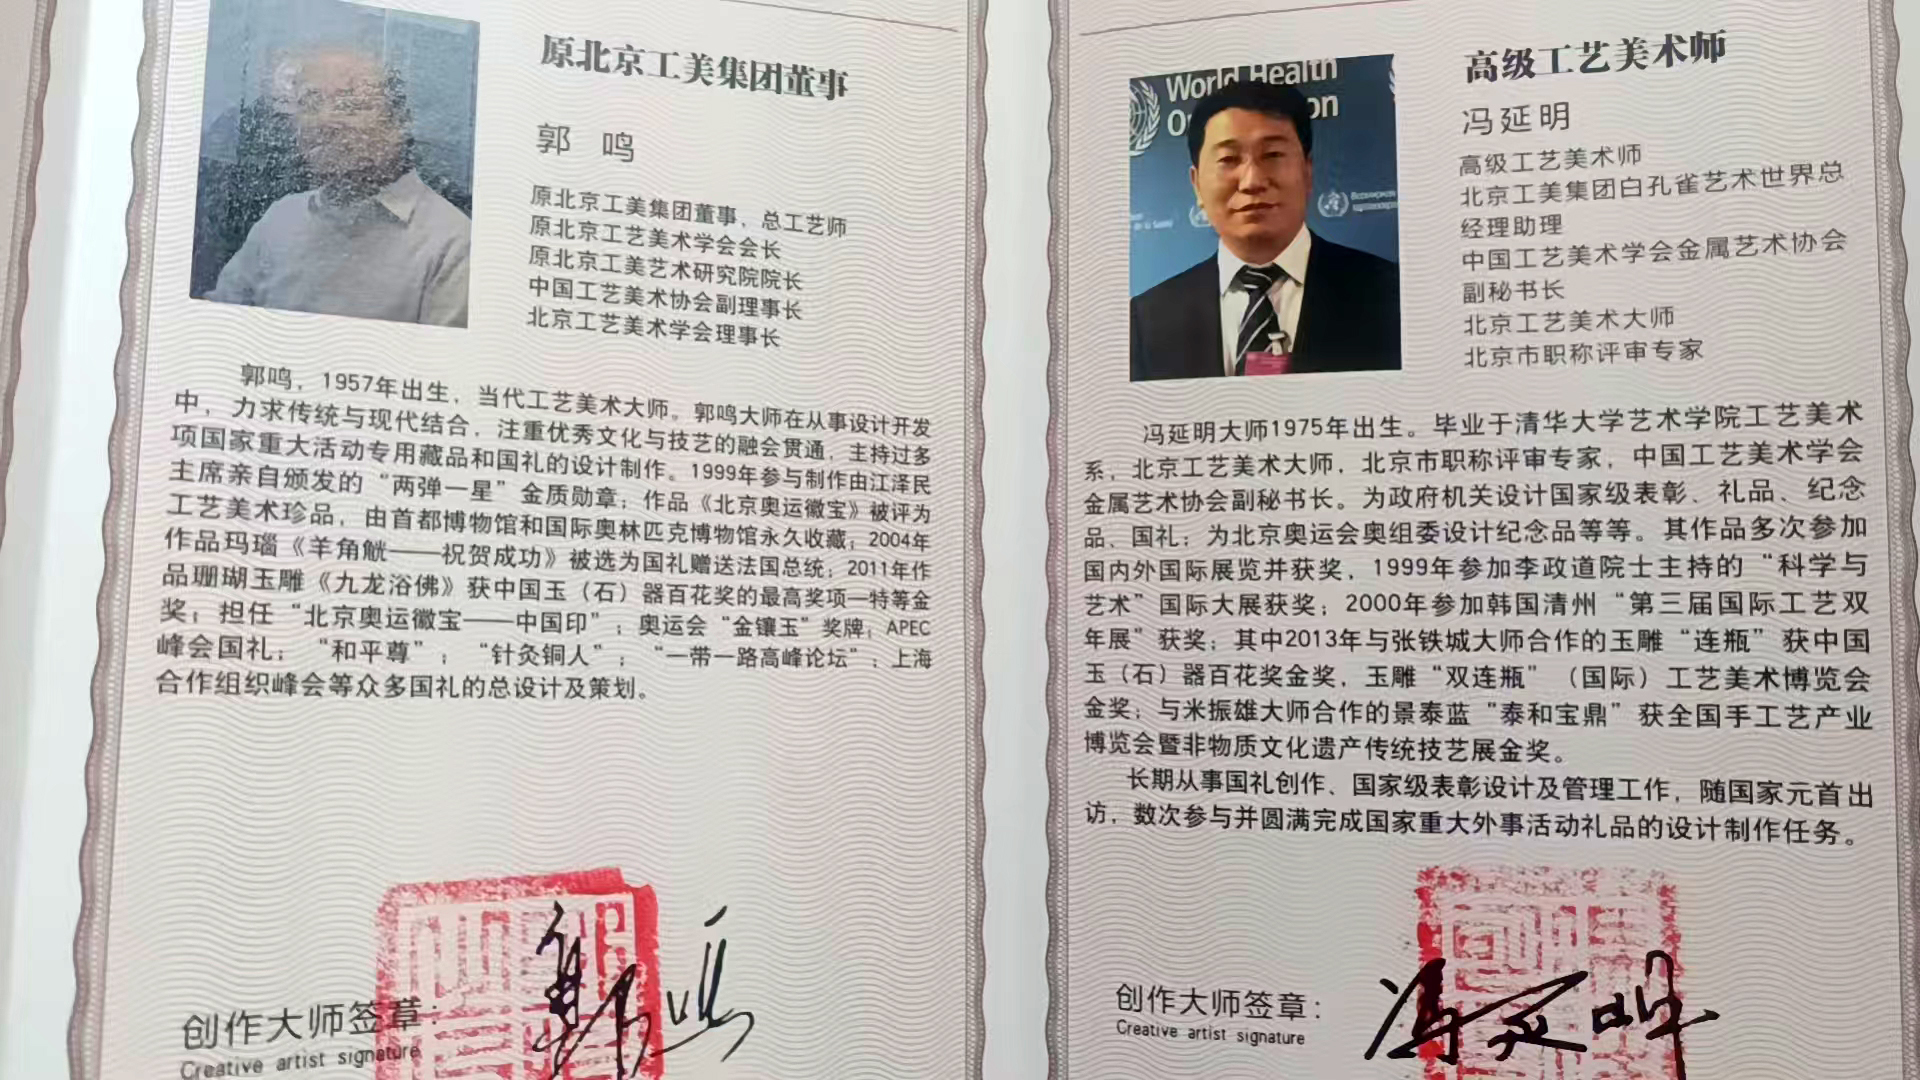 原北京工美集团董事
郭 鸣
原北京工美集团董事、总工艺师
原北京工艺美术学会会长
原北京工美艺术研究院院长
中国工艺美术协会副理事长
北京工艺美术学会理事长
郭鸣，1957年出生，当代工艺美术大师。郭鸣大师在从事设计开发
中，力求传统与现代结合，注重优秀文化与技艺的融会贯通，主持过多
项国家重大活动专用藏品和国礼的设计制作。1999年参与制作由江泽民
主席亲自颁发的“两弹一星”金质勋章；作品《北京奥运徽宝》被评为
工艺美术珍品，由首都博物馆和国际奥林匹克博物馆永久收藏；2004年
作品玛瑙《羊角觥——祝贺成功》被选为国礼赠送法国总统；2011年作
品珊瑚玉雕《九龙浴佛》获中国玉（石）器百花奖的最高奖项—特等金
奖；担任“北京奥运徽宝——中国印”；奥运会“金镶玉”奖牌；APEC
峰会国礼；“和平尊”；“针灸铜人”；“一带一路高峰论坛”；上海
合作组织峰会等众多国礼的总设计及策划。
创作大师签章：
Creative artist signature
郭鸣
World Health
高级工艺美术师
冯延明
高级工艺美术师
北京工美集团白孔雀艺术世界总
经理助理
中国工艺美术学会金属艺术协会
副秘书长
北京工艺美术大师
北京市职称评审专家
冯延明大师1975年出生。毕业于清华大学艺术学院工艺美术
系，北京工艺美术大师，北京市职称评审专家，中国工艺美术学会
金属艺术协会副秘书长。为政府机关设计国家级表彰、礼品、纪念
品、国礼；为北京奥运会奥组委设计纪念品等等。其作品多次参加
国内外国际展览并获奖，1999年参加李政道院士主持的“科学与
艺术”国际大展获奖；2000年参加韩国清州“第三届国际工艺双
年展”获奖；其中2013年与张铁城大师合作的玉雕“连瓶”获中国
玉（石）器百花奖金奖，玉雕“双连瓶”（国际）工艺美术博览会
金奖；与米振雄大师合作的景泰蓝“泰和宝鼎”获全国手工艺产业
博览会暨非物质文化遗产传统技艺展金奖。
长期从事国礼创作、国家级表彰设计及管理工作，随国家元首出
访，数次参与并圆满完成国家重大外事活动礼品的设计制作任务。
创作大师签章：
Creative artist signature
冯延明